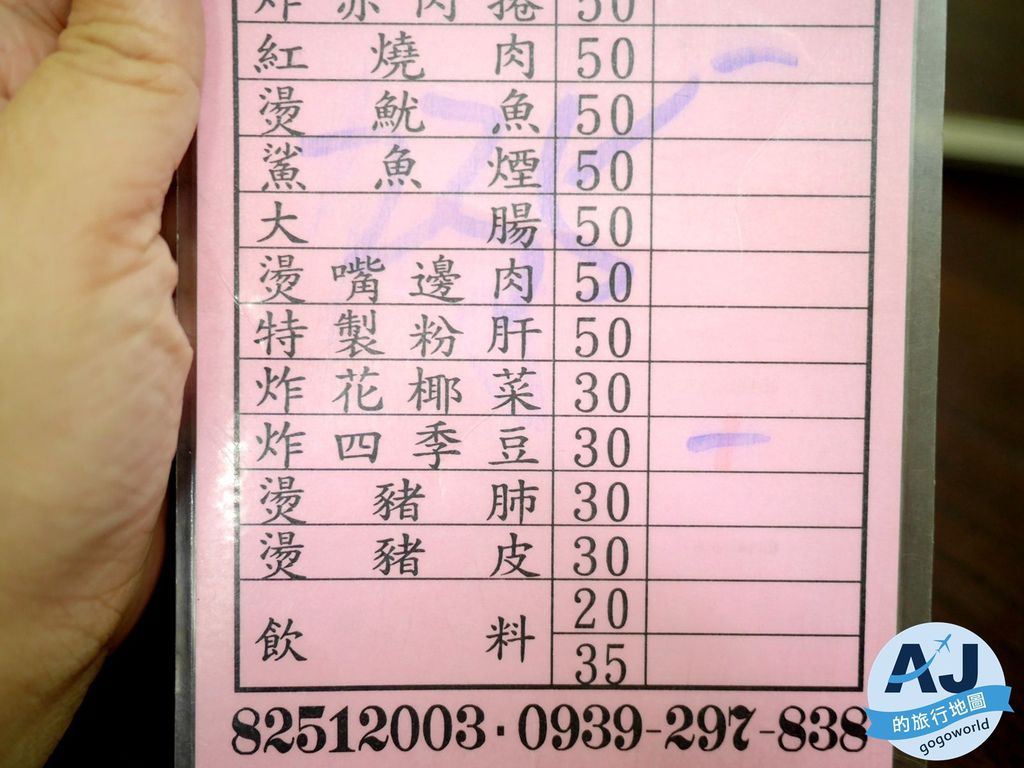 炸赤肉捲 50
紅燒肉 50 一
燙魷魚 50
鯊魚煙 50
大腸 50
燙嘴邊肉 50
特製粉肝 50
炸花椰菜 30
炸四季豆 30 一
燙豬肺 30
燙豬皮 30
飲料 20
35
82512003·0939-297-838
AJ
的旅行地圖
gogoworld